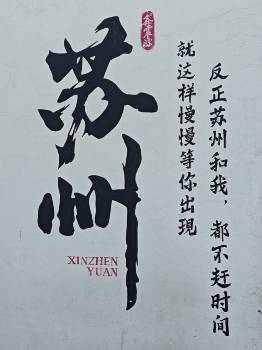 苏州
XINZHEN
YUAN
反正苏州和我，都不赶时间
就这样慢慢等你出現